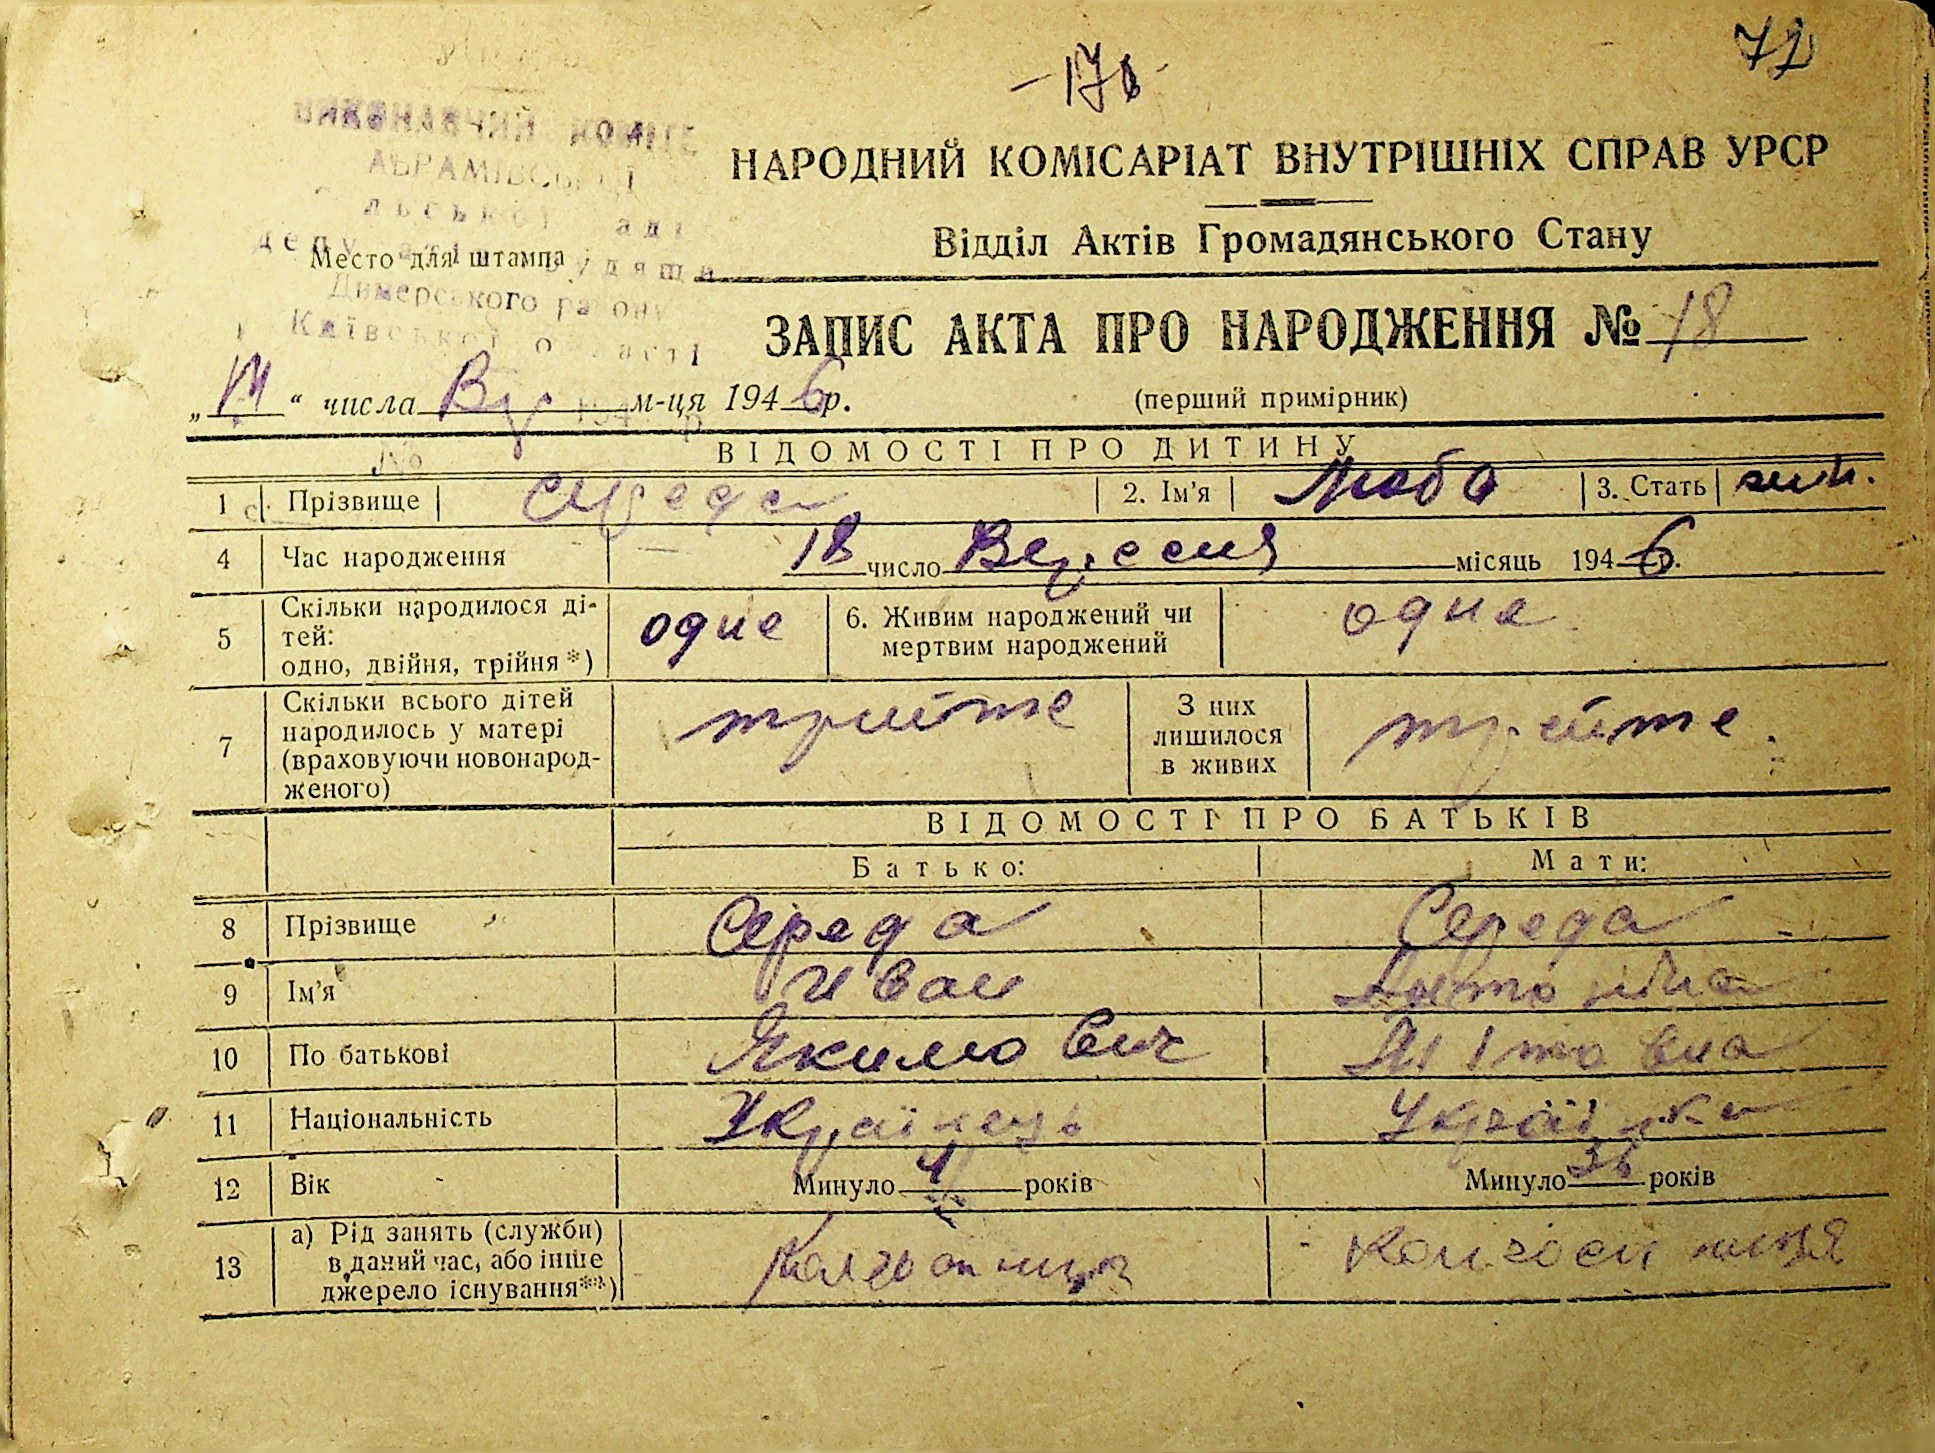 72
НАРОДНИЙ КОМІСАРІАТ ВНУТРІШНІХ СПРАВ УРСР
Відділ Актів Громадянського Стану
АБРАМІВСЬКОЇ
Место для штампа
Димерського району
Київської області
ЗАПИС АКТА ПРО НАРОДЖЕННЯ № 18
„ “ числа Вер м-ця 1946 р. (перший примірник)
ВІДОМОСТІ ПРО ДИТИНУ
1 Прізвище Середа 2. Ім'я Люба 3. Стать жин.
4 Час народження 18 число Вересня місяць 1946 р.
5 Скільки народилося ді-
тей:
одно, двійня, трійня *) одне 6. Живим народжений чи
мертвим народжений одне
7 Скільки всього дітей
народилось у матері
(враховуючи новонарод-
женого) трийте З них
лишилося
в живих трейте
ВІДОМОСТІ ПРО БАТЬКІВ
Батько: Мати:
8 Прізвище Середа Середа
9 Ім'я Иван Антоніна
10 По батькові Якимович
11 Національність Українець Українка
12 Вік Минуло 41 років Минуло 36 років
13 а) Рід занять (служби)
в даний час, або інше
джерело існування**)